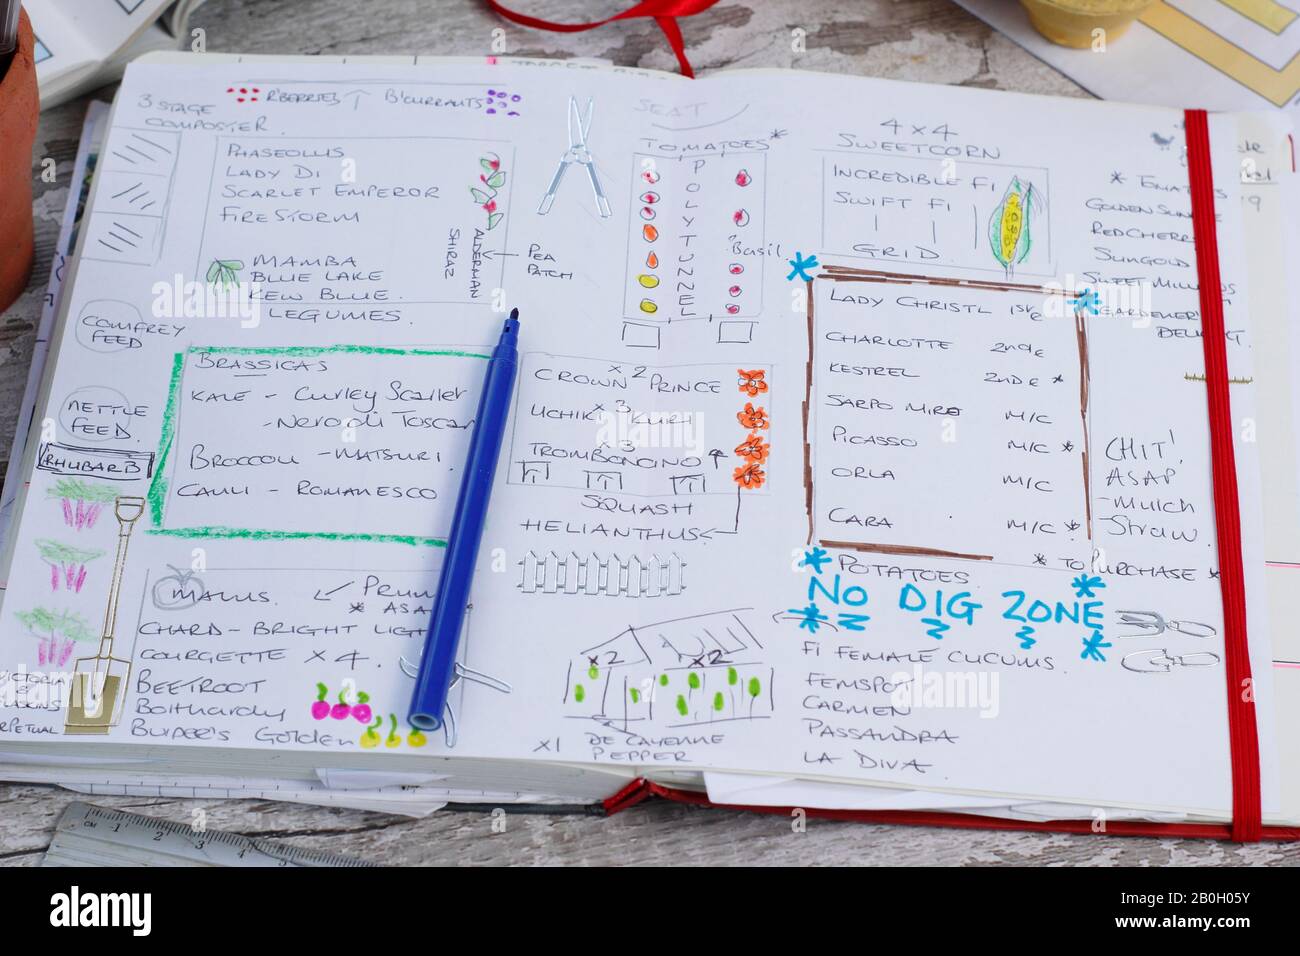 R'BERRIES B'CURRANTS
3 STAGE
COMPOSTER.
PHASEOLUS
LADY DI
SCARLET EMPEROR
FIRESTORM
MAMBA
BLUE LAKE
KEW BLUE.
LEGUMES.
ALDERMAN
SHIRAZ
PEA
PATCH
COMFREY
FEED
NETTLE
FEED.
RHUBARB
BRASSICAS
KALE - Curley Scarlet
- Nero di Toscan
BROCCOLI - MATSURI.
CAULI - ROMANESCO
MALUS.
* ASA
CHARD - BRIGHT LIGH
COURGETTE X 4.
BEETROOT
Bolthardy
Burpee's Golden
VICTORIA
PERPETUAL
SEAT
TOMATOES *
POLYTUNNEL
Basil
CROWN PRINCE
X2
UCHIKI KURI
X3
TROMBONCINO
X3
SQUASH
HELIANTHUS
X2 X2
X1 DE CAYENNE
PEPPER
4x4
SWEETCORN
INCREDIBLE F1
SWIFT F1
GRID
LADY CHRISTL 1st/E
CHARLOTTE 2nd E
KESTREL 2nd E *
SARPO MIRO M/C
PICASSO M/C *
ORLA M/C
CARA M/C *
POTATOES
* TO PURCHASE *
NO DIG ZONE
F1 FEMALE CUCUMS
FEMSPOT
CARMEN
PASSANDRA
LA DIVA
* TOMATOES
GOLDEN SUN
RED CHERR
SUNGOLD
SWEET MILL
GARDENER'S
DELIGHT
CHIT!
ASAP
- Mulch
Straw
CM 1 2 3 4 5
alamy
Image ID: 2B0H05Y
www.alamy.com